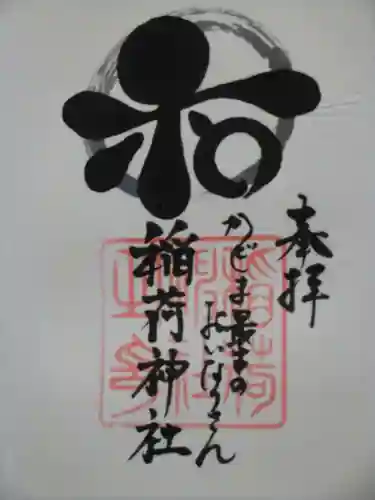 和
奉拝
かどま最古の
おいなりさん
稲荷神社